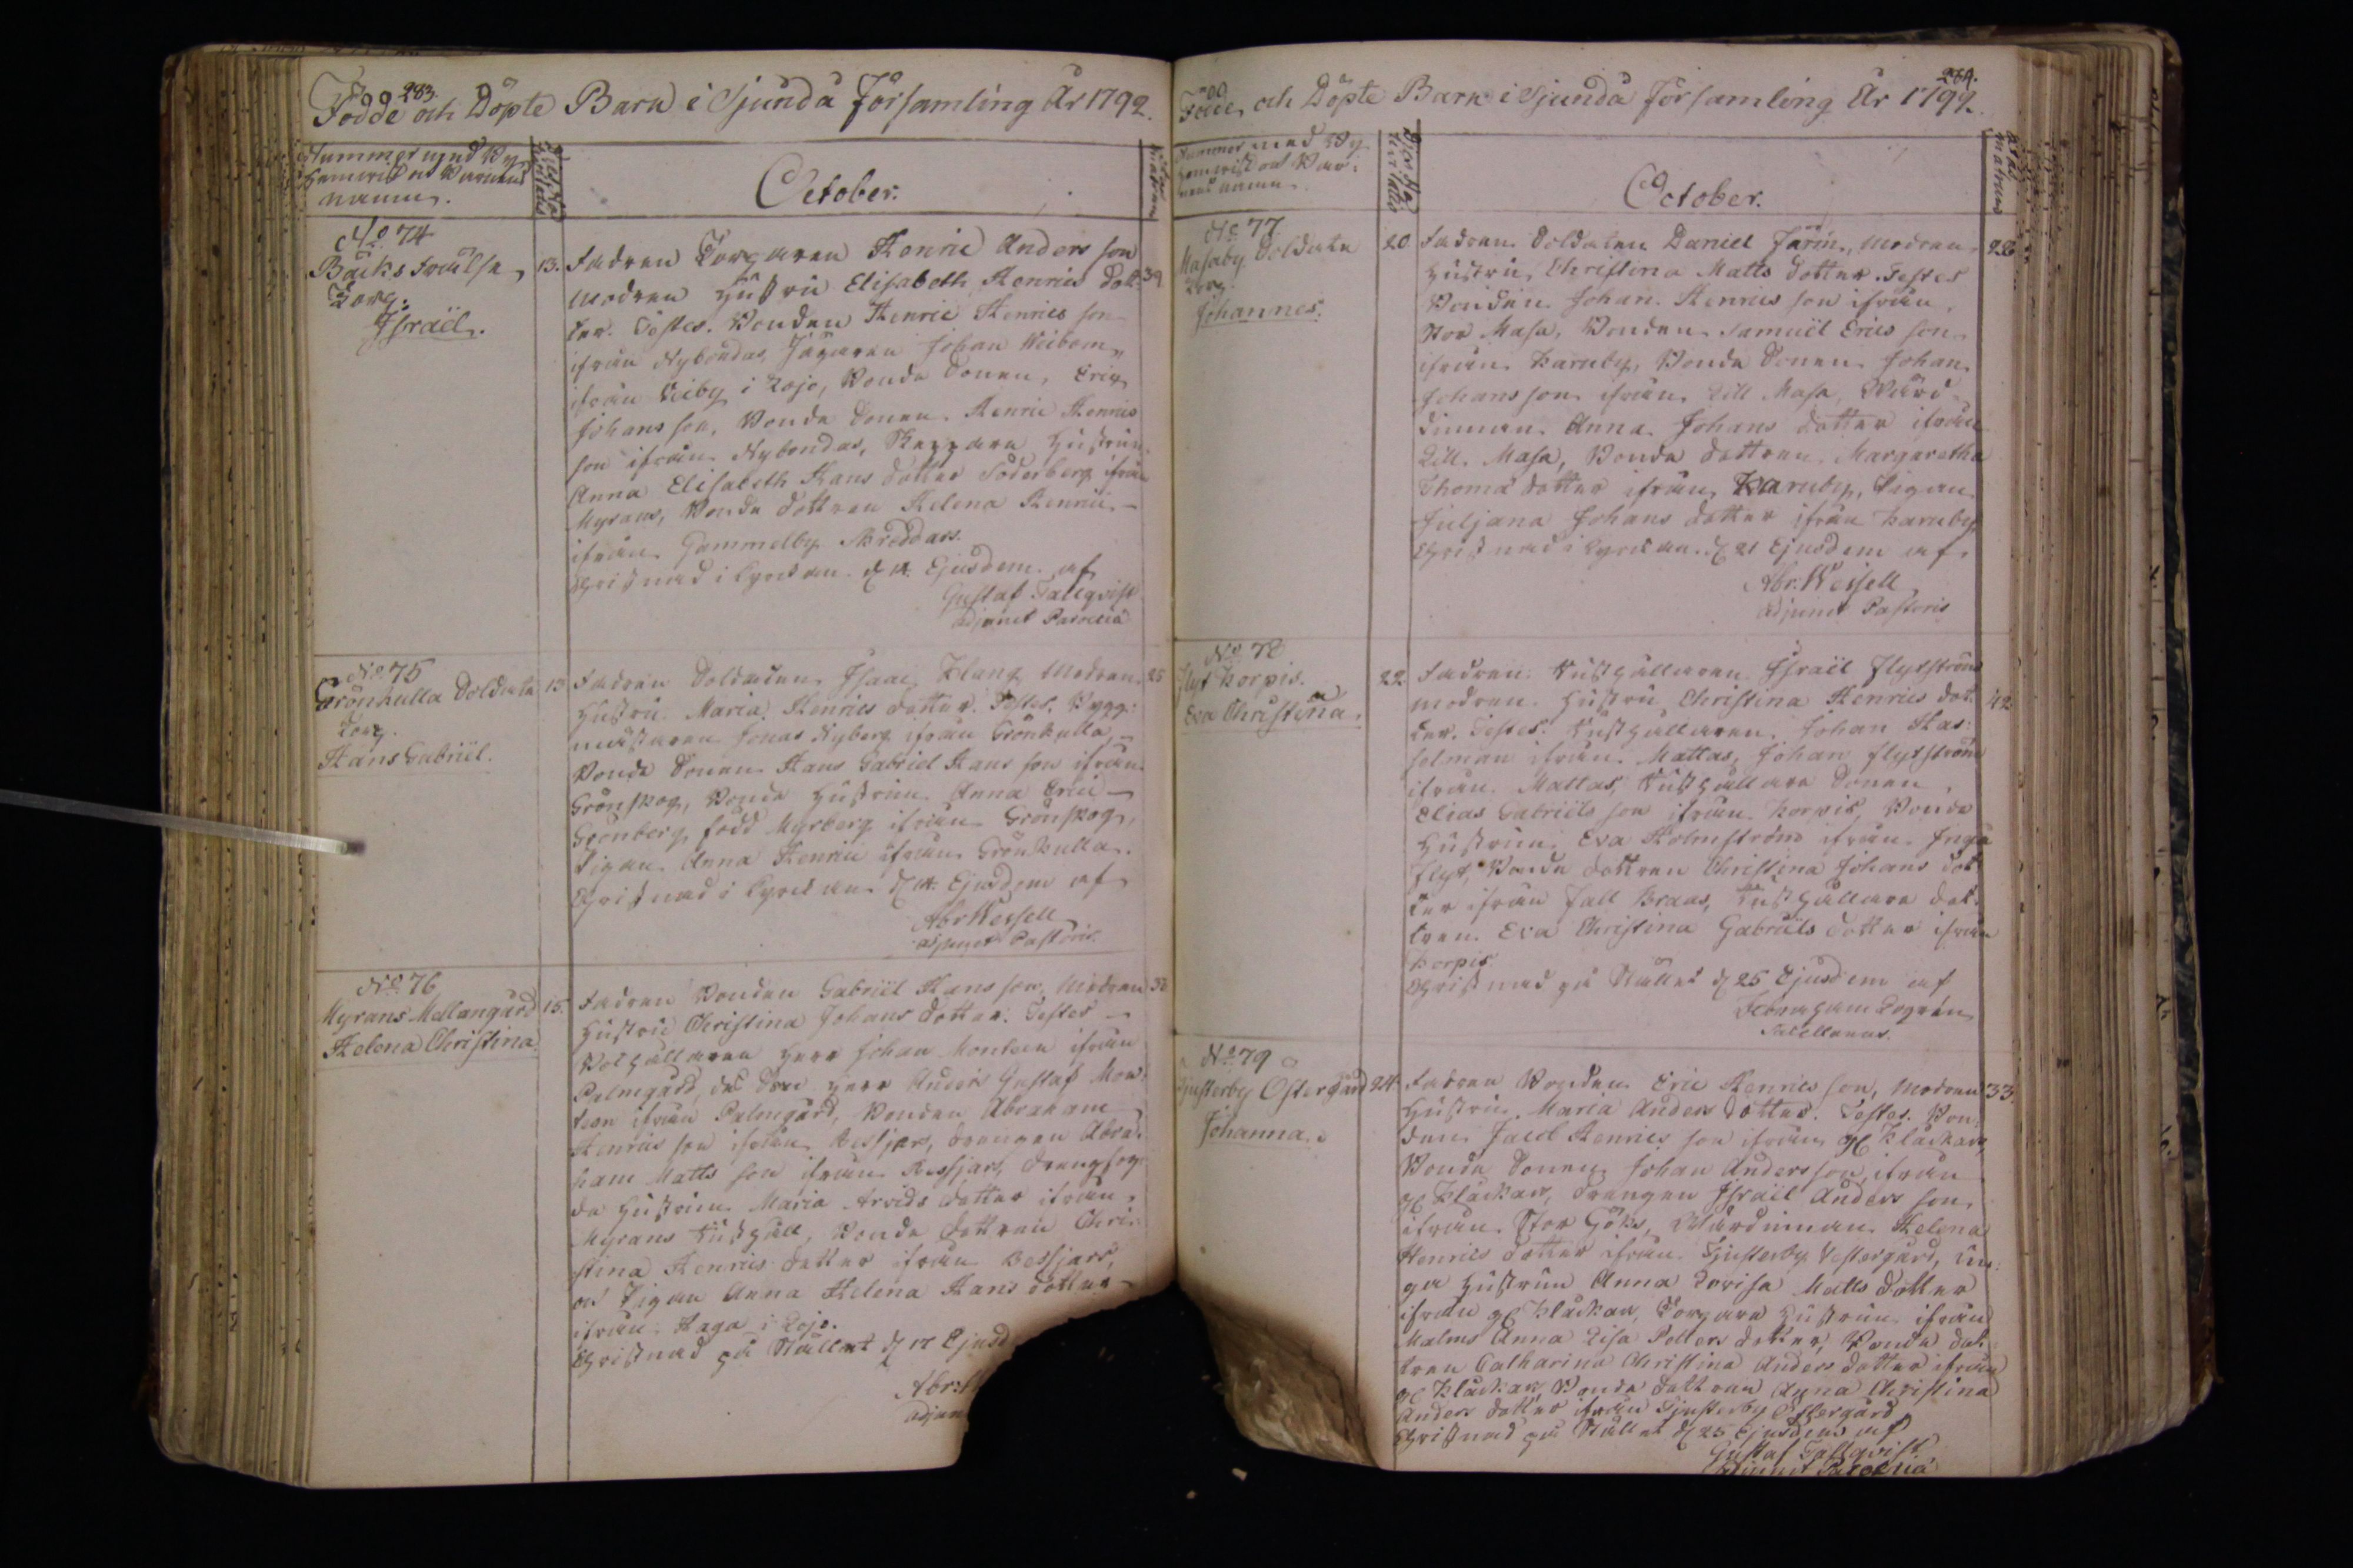 283.
Födde och Döpte Barn i Sjundå Församling År 1792.
Nummer med By
Hemvist och Barnens
namn.
October.
No. 74
Bäcks Frälse
Torp.
Israël.
13.
Fadren Torparen Henric Anders son
39
modren Hustru Elisabeth Henrics dot-
ter. Testes. Bonden Henric Henrics son
ifrån Nybondas, Jägaren Johan Widbom
ifrån Wiby i Lojo, Bonde Sonen, Eric
Johans son, Bonde Sonen Henric Henrics
son ifrån Nybondas, Hustrun
Anna Elisabeth Hans dotter Söderberg ifrån
Myrans, Bonde dottren Helena Henrics
ifrån Gammelby Skreddars.
Christnad i Kyrckan d. 14. Ejusdem af
Gustaf Tallqvist
adjunct Paroeciæ
No. 75
Grönkulla Soldate
Torp.
Hans Gabriel.
13
Fadren Soldaten Isaac Klang Modren
25
Hustru Maria Henrics dotter. Testes. Bygg-
mästaren Jonas Nyberg ifrån Grönkulla,
Bonde Sonen Hans Gabriel Hans son ifrån
Grönskog, Bonde Hustrun Anna Eric
Grönberg, född Myrberg ifrån Grönskog,
Pigan Anna Henrics ifrån Grönkulla.
Christnad i Kyrckan d. 14. Ejusdem af
Abr. Wessell
adjunct Pastoris.
No. 76
Myrans Mellangård
Helena Christina.
15.
Fadren Bonden Gabriël Hans son, Modren
Hustru Christina Johans dotter. Testes
Bolhållaren Herr Johan Monteen ifrån
Palmgård, des Son Herr Anders Gustaf Mon-
teen ifrån Palmgård, Bonden Abraham
Henrics son ifrån Bessjars, drengen Abra-
ham Matts son ifrån Bessjars,
Hustrun Maria Arvids dotter ifrån
Myrans Rusthåll, Bonde dottren Chri-
stina Henrics dotter ifrån Bessjars,
och Pigan Anna Helena Hans dotter
ifrån Haga i Lojo.
Christnad på Stället d. 17 Ejusd
Abr.
adjun
284.
Födde och Döpte Barn i Sjundå Församling År 1792.
Nummer med By
Hemvist och Bar-
nens namn.
October.
No. 77
Masaby Soldate
Torp
Johannes.
20
Fadren Soldaten Daniel Farm, modren
28
Hustru Christina Matts dotter. Testes
Bonden Johan Henrics son ifrån
Stor Masa, Bonden Samuël Erics son
ifrån Karuby, Bonde Sonen Johan
Johans son ifrån Lill Masa, Wärd-
dinnan Anna Johans dotter ifrån
Lill Masa, Bonde dottren Margaretha
Thomä dotter ifrån Karuby, Pigan
Juljana Johans dotter ifrån Karuby
Christnad i Kyrckan d. 21 Ejusdem af
Abr. Wessell
adjunct Pastoris
No. 78
Flyt Korpis.
Eva Christina.
22.
Fadren Rusthållaren Israël Flytström
modren Hustru Christina Henrics dot-
42
ter. Testes. Rusthållaren Johan Has-
selman ifrån Mattas, Johan Flytström
ifrån Mattas, Rusthållare Sonen
Elias Gabriels son ifrån Korpis, Bonde
Hustrun Eva Holmström ifrån Inga
Flyt, Bonde dottren Christina Johans dot-
ter ifrån Fall Braas, Rusthållare dot-
tren Eva Christina Gabriëls dotter ifrån
Korpis.
Christnad på Stället d. 25 Ejusdem af
Abraham Logrén
Sacellanus.
No. 79
Tjusterby Östergård
Johanna.
24
Fadren Bonden Eric Henrics son, Modren
33.
Hustru Maria Anders dotter. Testes. Bon-
den Jacob Henrics son ifrån Kläckars,
Bonde Sonen Johan Anders son ifrån
Kläckars, drengen Israël Anders son
ifrån Stor Göks, Wärdinnan Helena
Henrics dotter ifrån Tjusterby Vestergård, un-
ga Hustrun Anna Lovisa Matts dotter
ifrån Kläckars, Torpare Hustrun ifrån
Malms Anna Lisa Petters dotter, Bonde dot-
tren Catharina Christina Anders dotter ifrån
Kläckars, Bonde dottren Anna Christina
Anders dotter ifrån Tjusterby Östergård
Christnad på Stället d. 25 Ejusdem af
Gustaf Tallqvist
Adjunct Paroeciæ